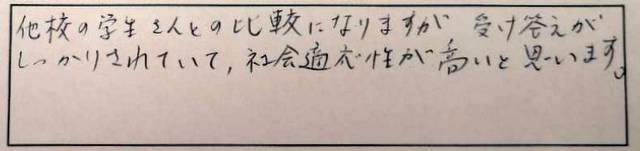 他校の学生さんとの比較になりますが 受け答えが
しっかりされていて,社会適応性が高いと思います。